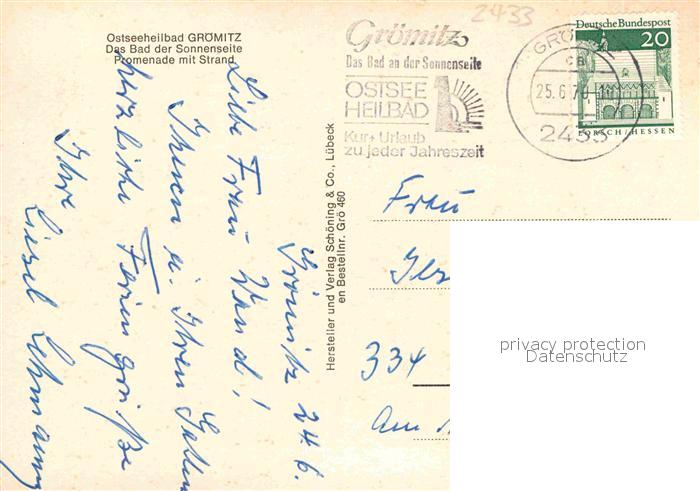 Ostseeheilbad GRÖMITZ
Das Bad der Sonnenseite
Promenade mit Strand
2433
Grömitz
Das Bad an der Sonnenseite
OSTSEE
HEILBAD
Kur + Urlaub
zu jeder Jahreszeit
CB
25.6.70
2433
Deutsche Bundespost
20
LORSCH/HESSEN
Grömitz 24.6.
Liebe Frau Wand!
Ihnen u. Ihrem
herzliche Feriengrüße
Ihre
Liesel Lehmann
Hersteller und Verlag Schöning & Co., Lübeck
en Bestellnr. Grö 460
Frau
334
Am
privacy protection
Datenschutz